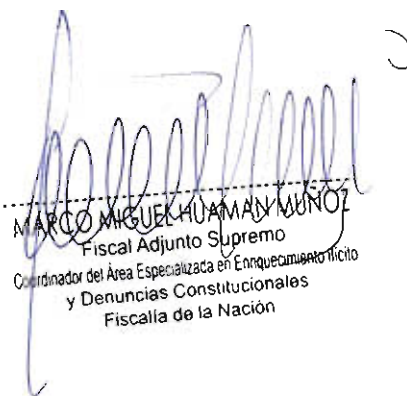 MARCO MIGUEL HUAMAN MUÑOZ
Fiscal Adjunto Supremo
Coordinador del Área Especializada en Enriquecimiento Ilícito
y Denuncias Constitucionales
Fiscalía de la Nación